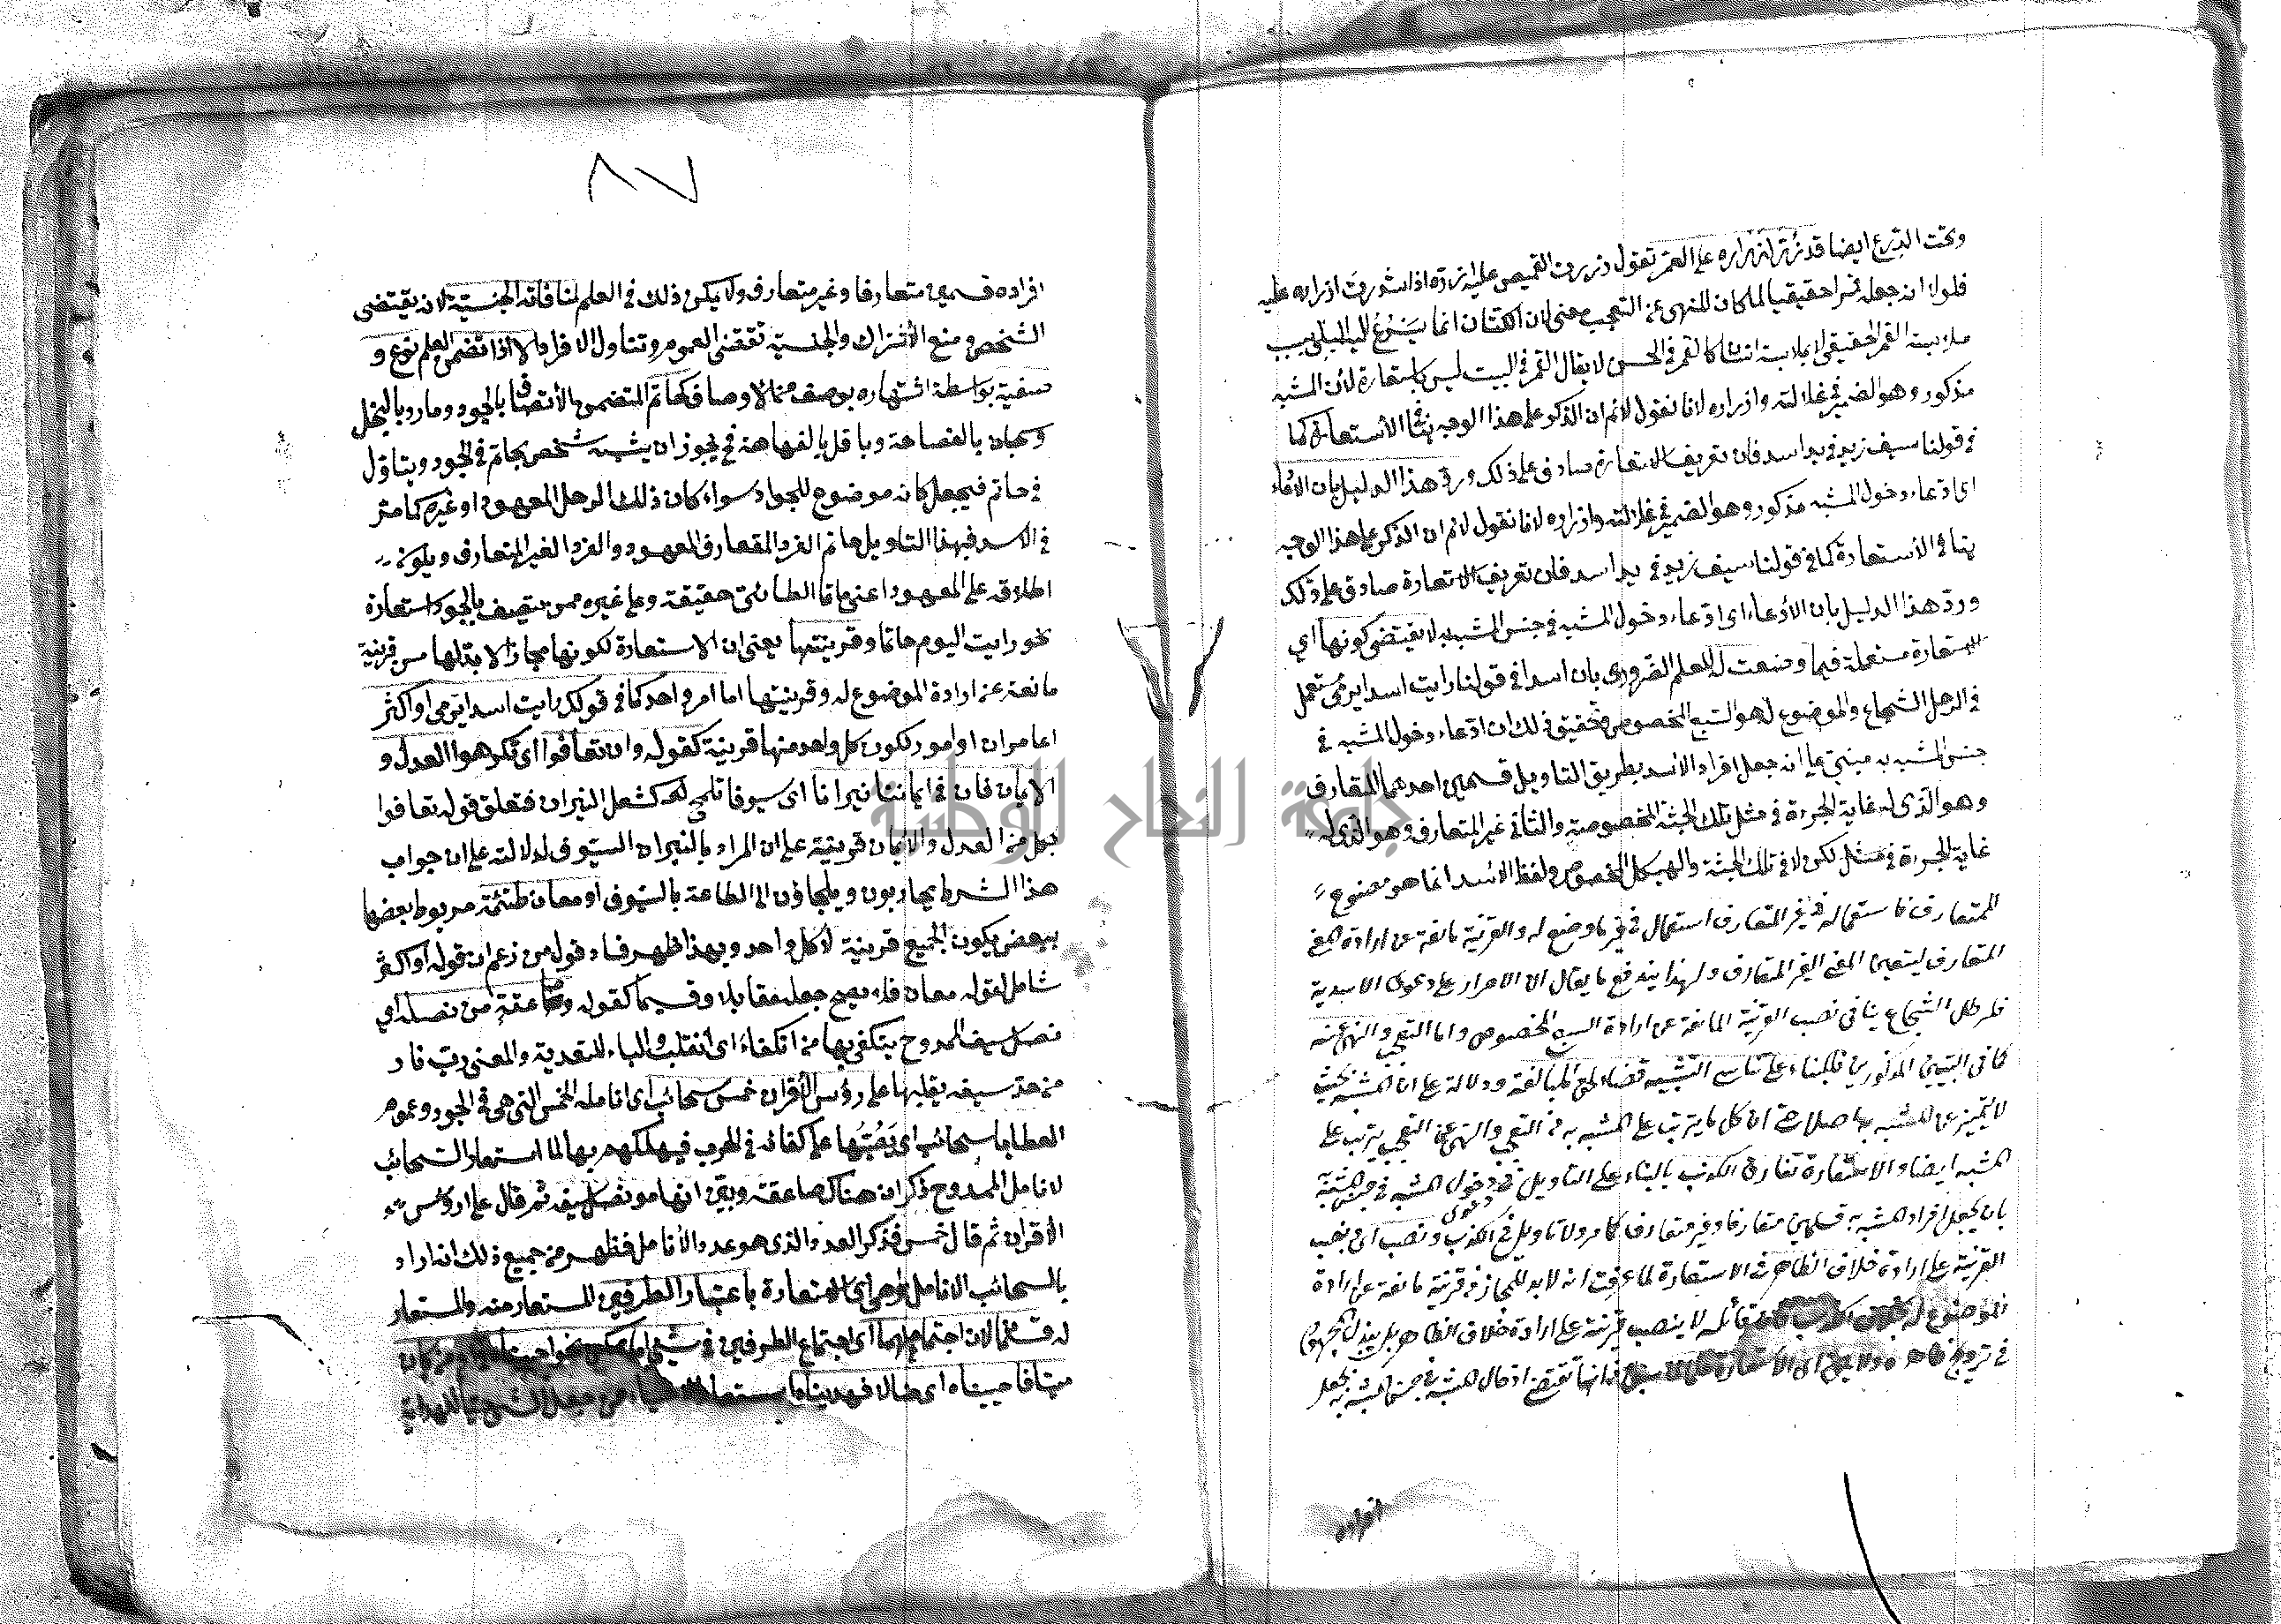 وتحت الدرع ايضا قد زر ازراره على القمر تقول زررت القميص عليه ازره اذا شددت ازراره عليه
فلولا انه جعله قمرا حقيقيا لما كان للنهي عن التعجب معنى لان الكتان انما يسرع اليه البلى بسبب
ملابسة القمر الحقيقي لا بملابسة انسان كالقمر في الحسن لا يقال القمر في البيت ليس باستعارة لان المشبه
مذكور وهو الضمير في غلالته وازراره لانا نقول لا نم ان الذكر على هذا الوجه ينافي الاستعارة كما
في قولنا سيف زيد في يد اسد فان تعريف الاستعارة صادق على ذلك ورد هذا الدليل بان الادعاء
اى ادعاء دخول المشبه مذكور وهو الضمير في غلالته وازراره لانا نقول لا نم ان الذكر على هذا الوجه
ينافي الاستعارة كما في قولنا سيف زيد في يد اسد فان تعريف الاستعارة صادق على ذلك
ورد هذا الدليل بان الادعاء اى ادعاء دخول المشبه في جنس المشبه به لا يقتضى كونها اي
الاستعارة مستعملة فيما وضعت له للعلم الضرورى بان اسدا في قولنا رايت اسدا يرمى مستعمل
في الرجل الشجاع والموضوع له هو السبع المخصوص وتحقيق ذلك ان ادعاء دخول المشبه في
جنس المشبه به مبني على انه جعل افراد الاسد بطريق التاويل قسمين احدهما المتعارف
وهو الذى له غاية الجرءة في مثل تلك الجثة المخصوصة والثاني غير المتعارف وهو الذي له
غاية الجرءة في مثل لكن لا في تلك الجثة والهيكل المخصوص ولفظ الاسد انما هو موضوع
للمتعارف فاستعماله في غير المتعارف استعمال في غير ما وضع له والقرينة مانعة عن ارادة المعنى
المتعارف ليتعين المعنى الغير المتعارف وبهذا يندفع ما يقال ان الاصرار على دعوى الاسدية
للرجل الشجاع ينافي نصب القرينة المانعة عن ارادة السبع المخصوص واما التعجب والنهي عنه
كما في البيتين المذكورين فللبناء على تناسي التشبيه قضاء لحق المبالغة ودلالة على ان المشبه بحيث
لا يتميز عن المشبه به اصلا حتى ان كل ما يترتب على المشبه به من التعجب والنهي عن التعجب يترتب على
المشبه ايضا والاستعارة تفارق الكذب بالبناء على التاويل في دعوى دخول المشبه في جنس المشبه به
بان يجعل افراد المشبه به قسمين متعارفا وغير متعارف كما مر ولا تاويل في الكذب ونصب اى بنصب
القرينة على ارادة خلاف الظاهر في الاستعارة لما عرفت انه لا بد للمجاز من قرينة مانعة عن ارادة
الموضوع له بخلاف الكذب فان قائله لا ينصب قرينة على ارادة خلاف الظاهر بل يبذل المجهود
في ترويج ظاهره ولا يكون اى الاستعارة فانها تقتضى ادخال المشبه في جنس المشبه به بجعل
افراده
٨٧
افراده قسمين متعارفا وغير متعارف ولا يمكن ذلك في العلم لمنافاته الجنسية لانه يقتضى
الشخص ومنع الاشتراك والجنسية تقتضى العموم وتناول الافراد الا اذا تضمن العلم نوع و
صفية بواسطة اشتهاره بوصف من الاوصاف كحاتم المتضمن الاتصاف بالجود ومادر بالبخل
وسحبان بالفصاحة وباقل بالفهاهة فح يجوز ان يشبه شخص بحاتم في الجود ويتاول
في حاتم فيجعل كانه موضوع للجواد سواء كان ذلك الرجل المعهود او غيره كما مر
في الاسد فبهذا التاويل حاتم الفرد المتعارف المعهود والفرد الغير المتعارف ويكون
اطلاقه على المعهود اعنى حاتما الطائى حقيقة وعلى غيره ممن يتصف بالجود استعارة
نحو رايت اليوم حاتما وقرينتها يعنى ان الاستعارة لكونها مجازا لا بد لها من قرينة
مانعة عن ارادة الموضوع له وقرينتها اما امر واحد كما في قولك رايت اسدا يرمى او اكثر
اى امران او امور لكون كل واحد منها قرينة كقوله وان تعافوا اى تكرهوا العدل و
الايمان فان في ايماننا نيرانا اى سيوفا تلمع كشعل النيران فتعلق قوله تعافوا
بكل من العدل والايمان قرينة على ان المراد بالنيران السيوف لدلالته على ان جواب
هذا الشرط يحاربون ويلجاؤن الى الطاعة بالسيوف او معان ملتئمة مربوط بعضها
ببعض يكون الجميع قرينة لا كل واحد وبهذا ظهر فساد قول من زعم ان قوله او اكثر
شامل لقوله معان فلا يصح جعله مقابلا وقسيما كقوله وصاعقة من نصله اي
نصل سيف الممدوح ينكفي بها من انكفاء اى انقلب والباء للتعدية والمعنى رب نار
من حد سيفه يقلبها على رؤس الاقران خمس سحائب اى انامله الخمس التي هي في الجود وعموم
العطايا سحائب اى يصبها على اكفائه في الحرب فيهلكهم بها لما استعار السحائب
لانامل الممدوح ذكر ان هناك صاعقة وبين انها من نصل سيفه ثم قال على ارؤس
الاقران ثم قال خمس فذكر العدد الذى هو عدد الانامل فظهر من جميع ذلك انه اراد
بالسحائب الانامل وهي اى الاستعارة باعتبار الطرفين المستعار منه والمستعار
له قسمان لان اجتماعهما اى اجتماع الطرفين في شئ اما ممكن نحو احييناه
ميتا فاحييناه اى ضالا فهديناه استعار الاحياء من جعل الشئ حيا للهداية